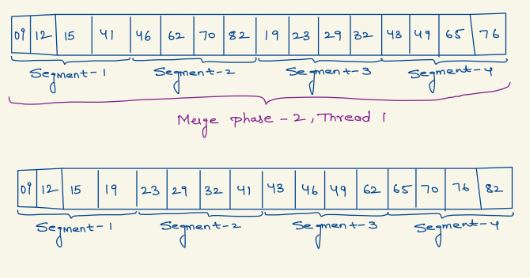 09 12 15 41 46 62 70 82 19 23 29 32 43 49 65 76
Segment-1 Segment-2 Segment-3 Segment-4
Merge phase - 2, Thread 1
09 12 15 19 23 29 32 41 43 46 49 62 65 70 76 82
Segment-1 Segment-2 Segment-3 Segment-4